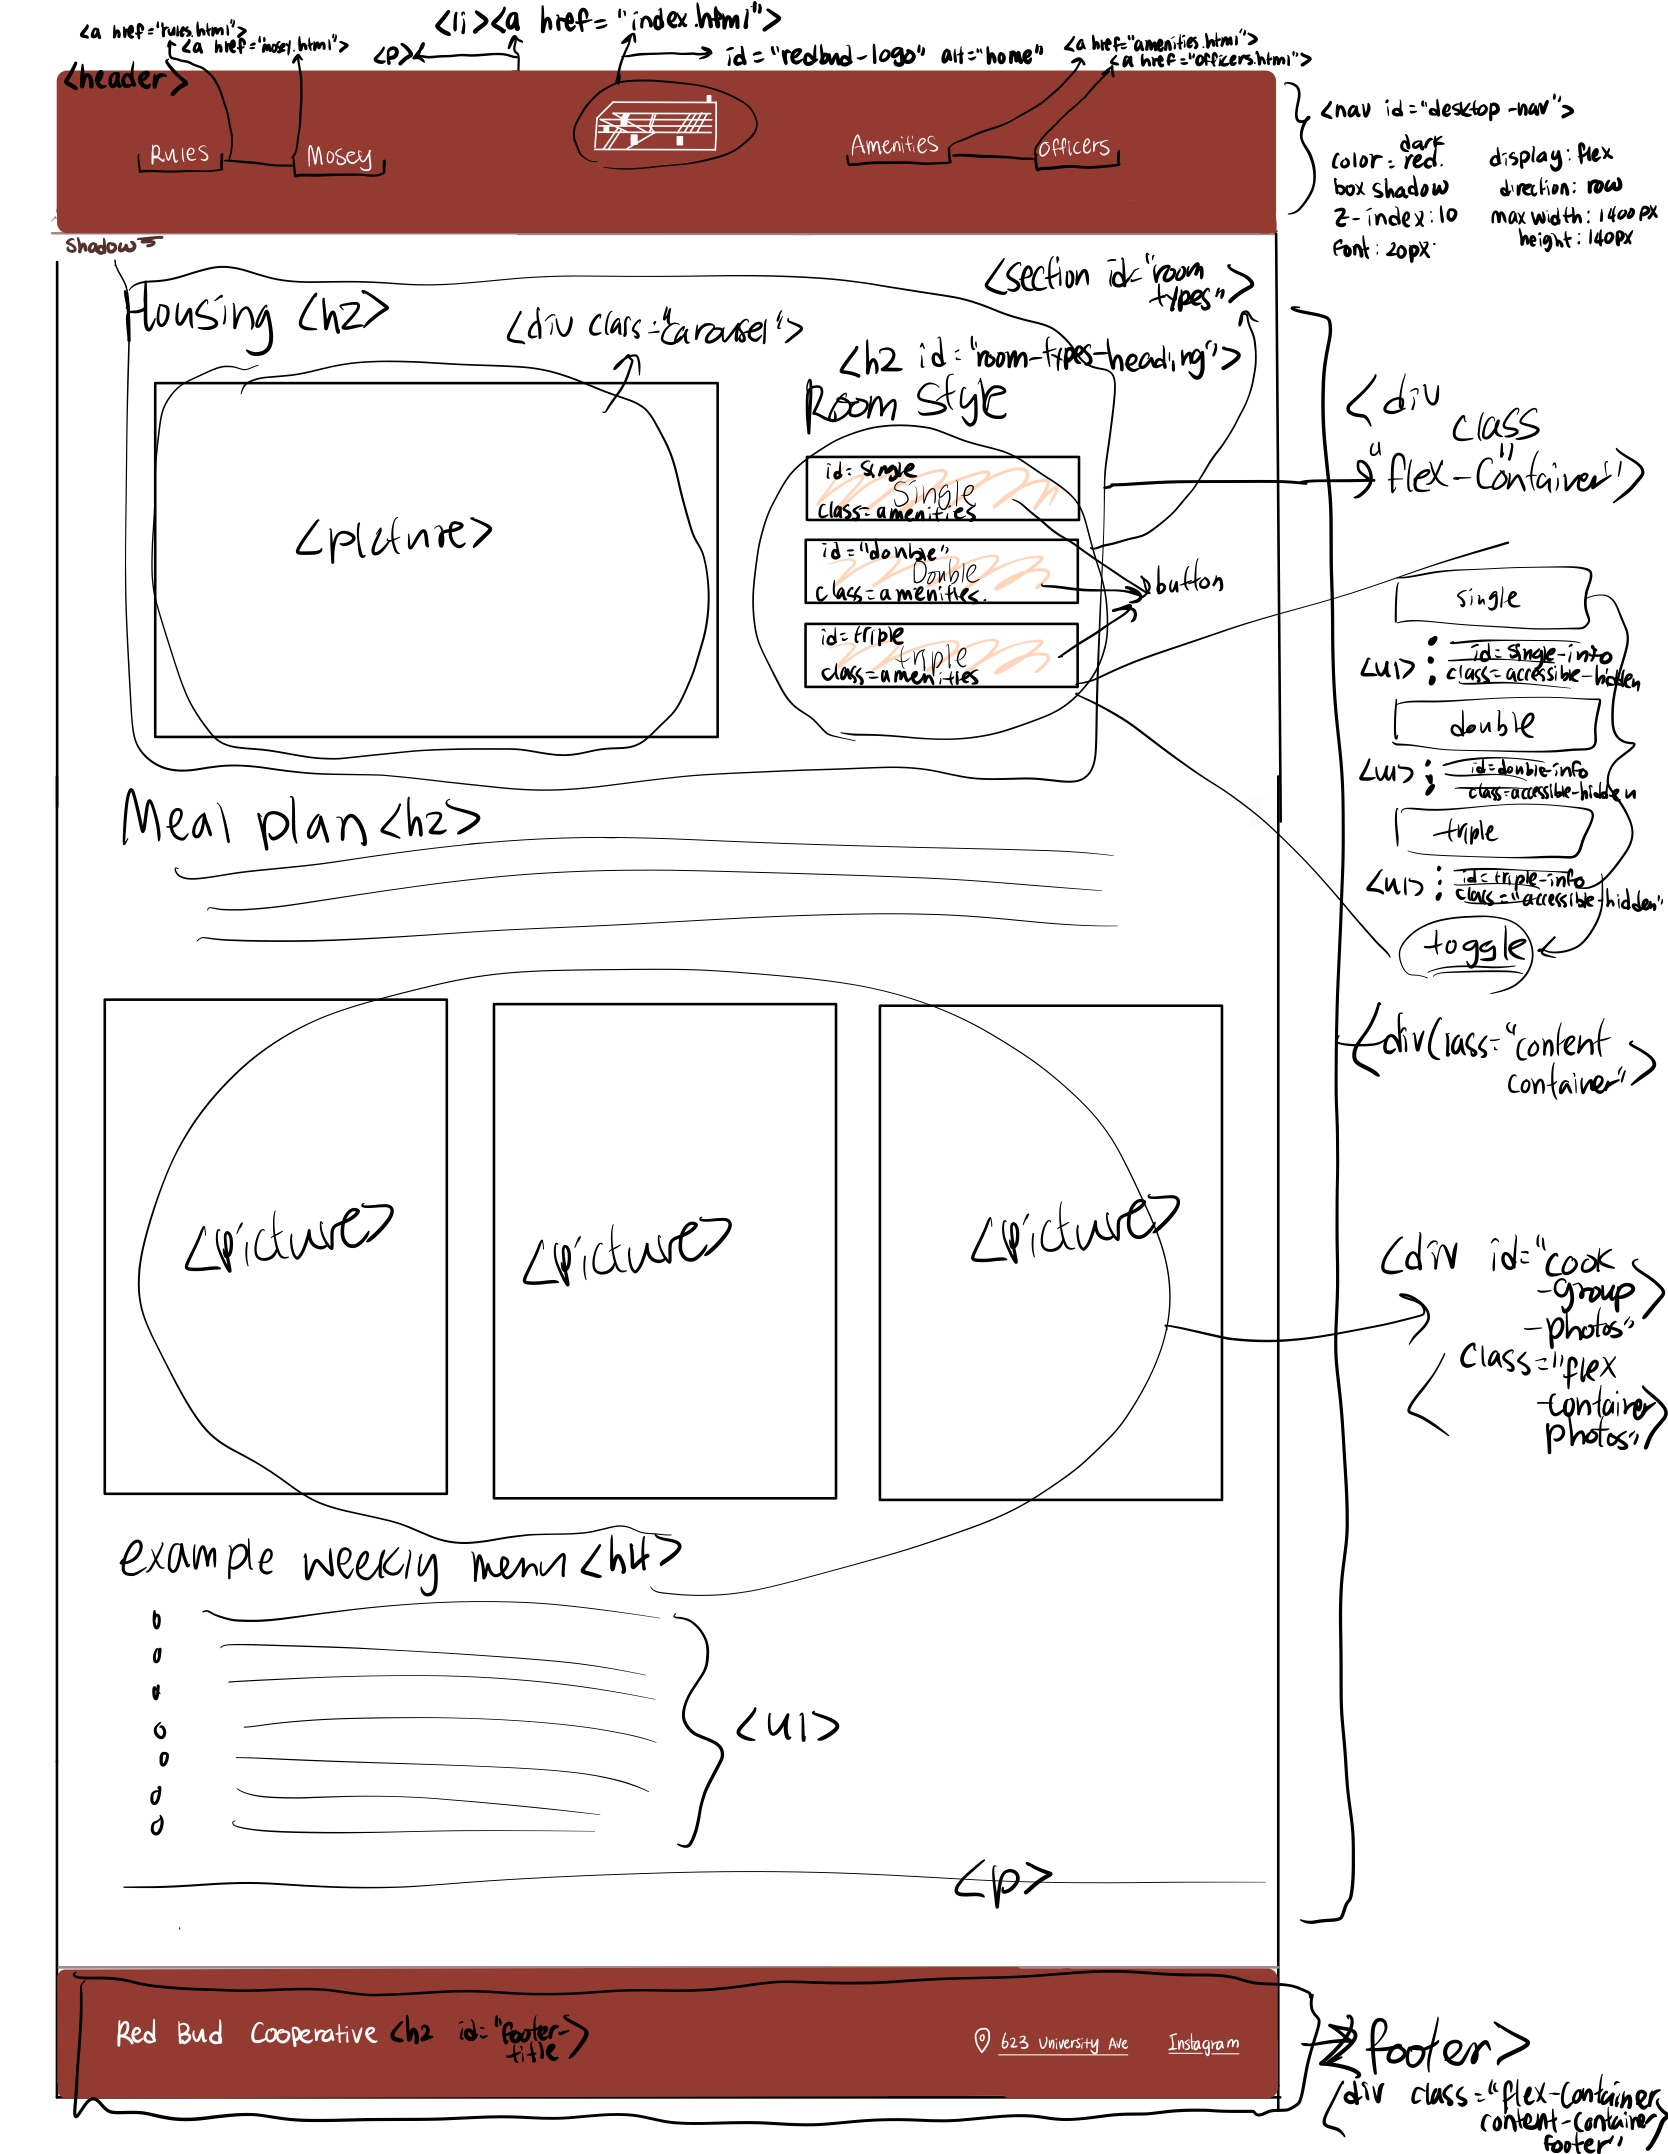 <a href="rules.html">
<a href="mosey.html">
<li><a href="index.html">
<p>
id="redbud-logo" alt="home"
<a href="amenities.html">
<a href="officers.html">
<header>
Rules
Mosey
Amenities
Officers
<nav id="desktop-nav">
color: dark red.
box shadow
z-index:10
font: 20px.
display: flex
direction: row
max width: 1400px
height: 140px
Shadow
Housing <h2>
<div class="carousel">
<section id="room
types">
<h2 id="room-types-heading">
Room Style
<picture>
id=single
Single
class=amenities
id="double"
Double
class=amenities.
id=triple
triple
class=amenities
button
<div
class
"flex-Container">
single
<ul>
id=single-info
class=accessible-hidden
double
<ul>
id=double-info
class=accessible-hidden
triple
<ul>
id=triple-info
class="accessible-hidden"
toggle
Meal plan <h2>
<div class="content
container">
<picture>
<picture>
<picture>
<div id="cook
-group
-photos"
class="flex
-container
photos">
example weekly menu <h4>
<ul>
<p>
Red Bud Cooperative <h2 id="footer-
title>
623 University Ave
Instagram
<footer>
<div class="flex-container
content-container
footer"